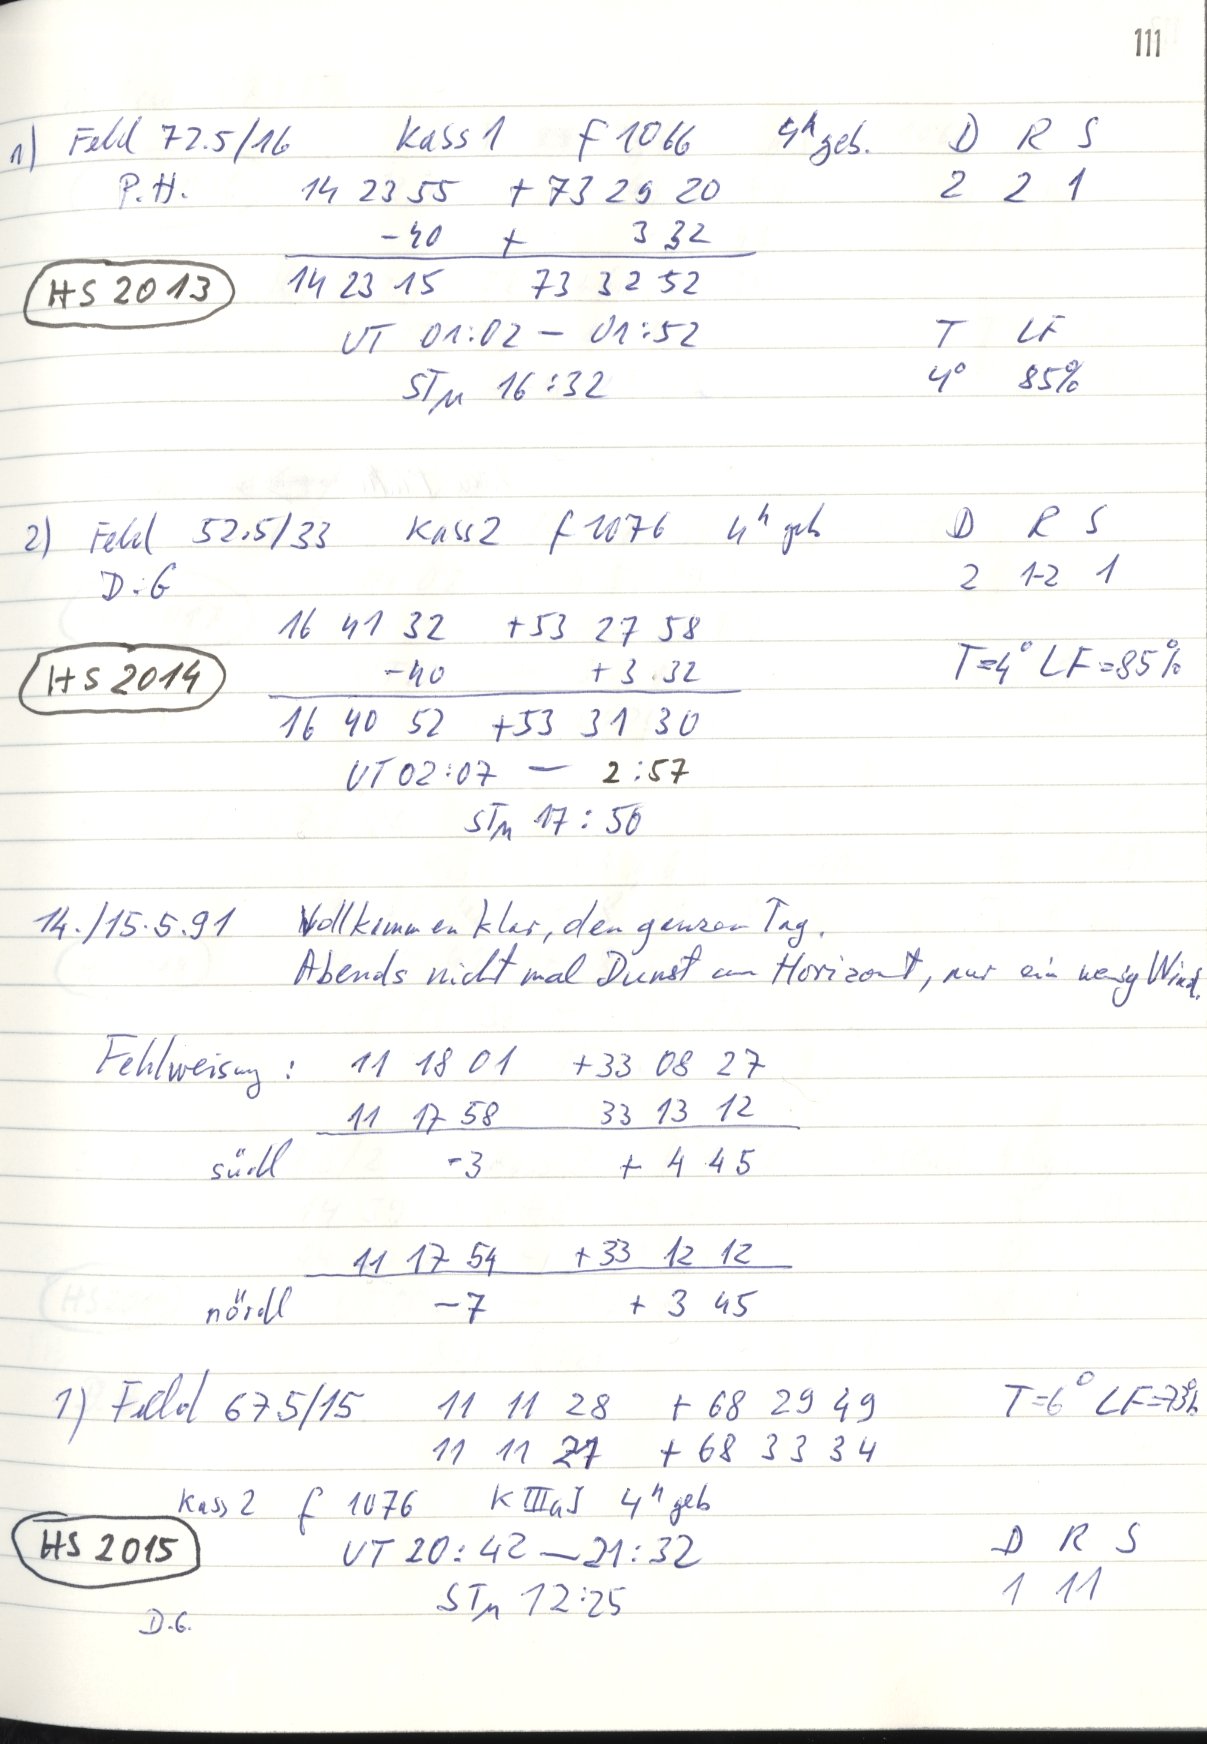 111
1) Feld 72.5/16 Kass 1 f 1066 4h geb. D R S
P.H. 14 23 55 + 73 29 20 2 2 1
-40 + 3 32
HS 2013 14 23 15 73 32 52
UT 01:02 – 01:52 T LF
STM 16:32 4° 85%
2) Feld 52.5/33 Kass 2 f 1076 4h geb D R S
D.G 2 1-2 1
16 41 32 +53 27 58
HS 2014 -40 +3 32 T=4° LF=85%
16 40 52 +53 31 30
UT 02:07 – 2:57
STM 17:50
14./15.5.91 Vollkommen klar, den ganzen Tag.
Abends nicht mal Dunst am Horizont, nur ein wenig Wind.
Fehlweisung: 11 18 01 +33 08 27
11 17 58 33 13 12
südl -3 + 4 45
11 17 54 +33 12 12
nördl -7 + 3 45
1) Feld 67.5/15 11 11 28 + 68 29 49 T=6° LF=73%
11 11 21 + 68 33 34
Kass 2 f 1076 K IIIaJ 4h geb
HS 2015 UT 20:42 – 21:32 D R S
STM 12:25 1 1 1
D.G.